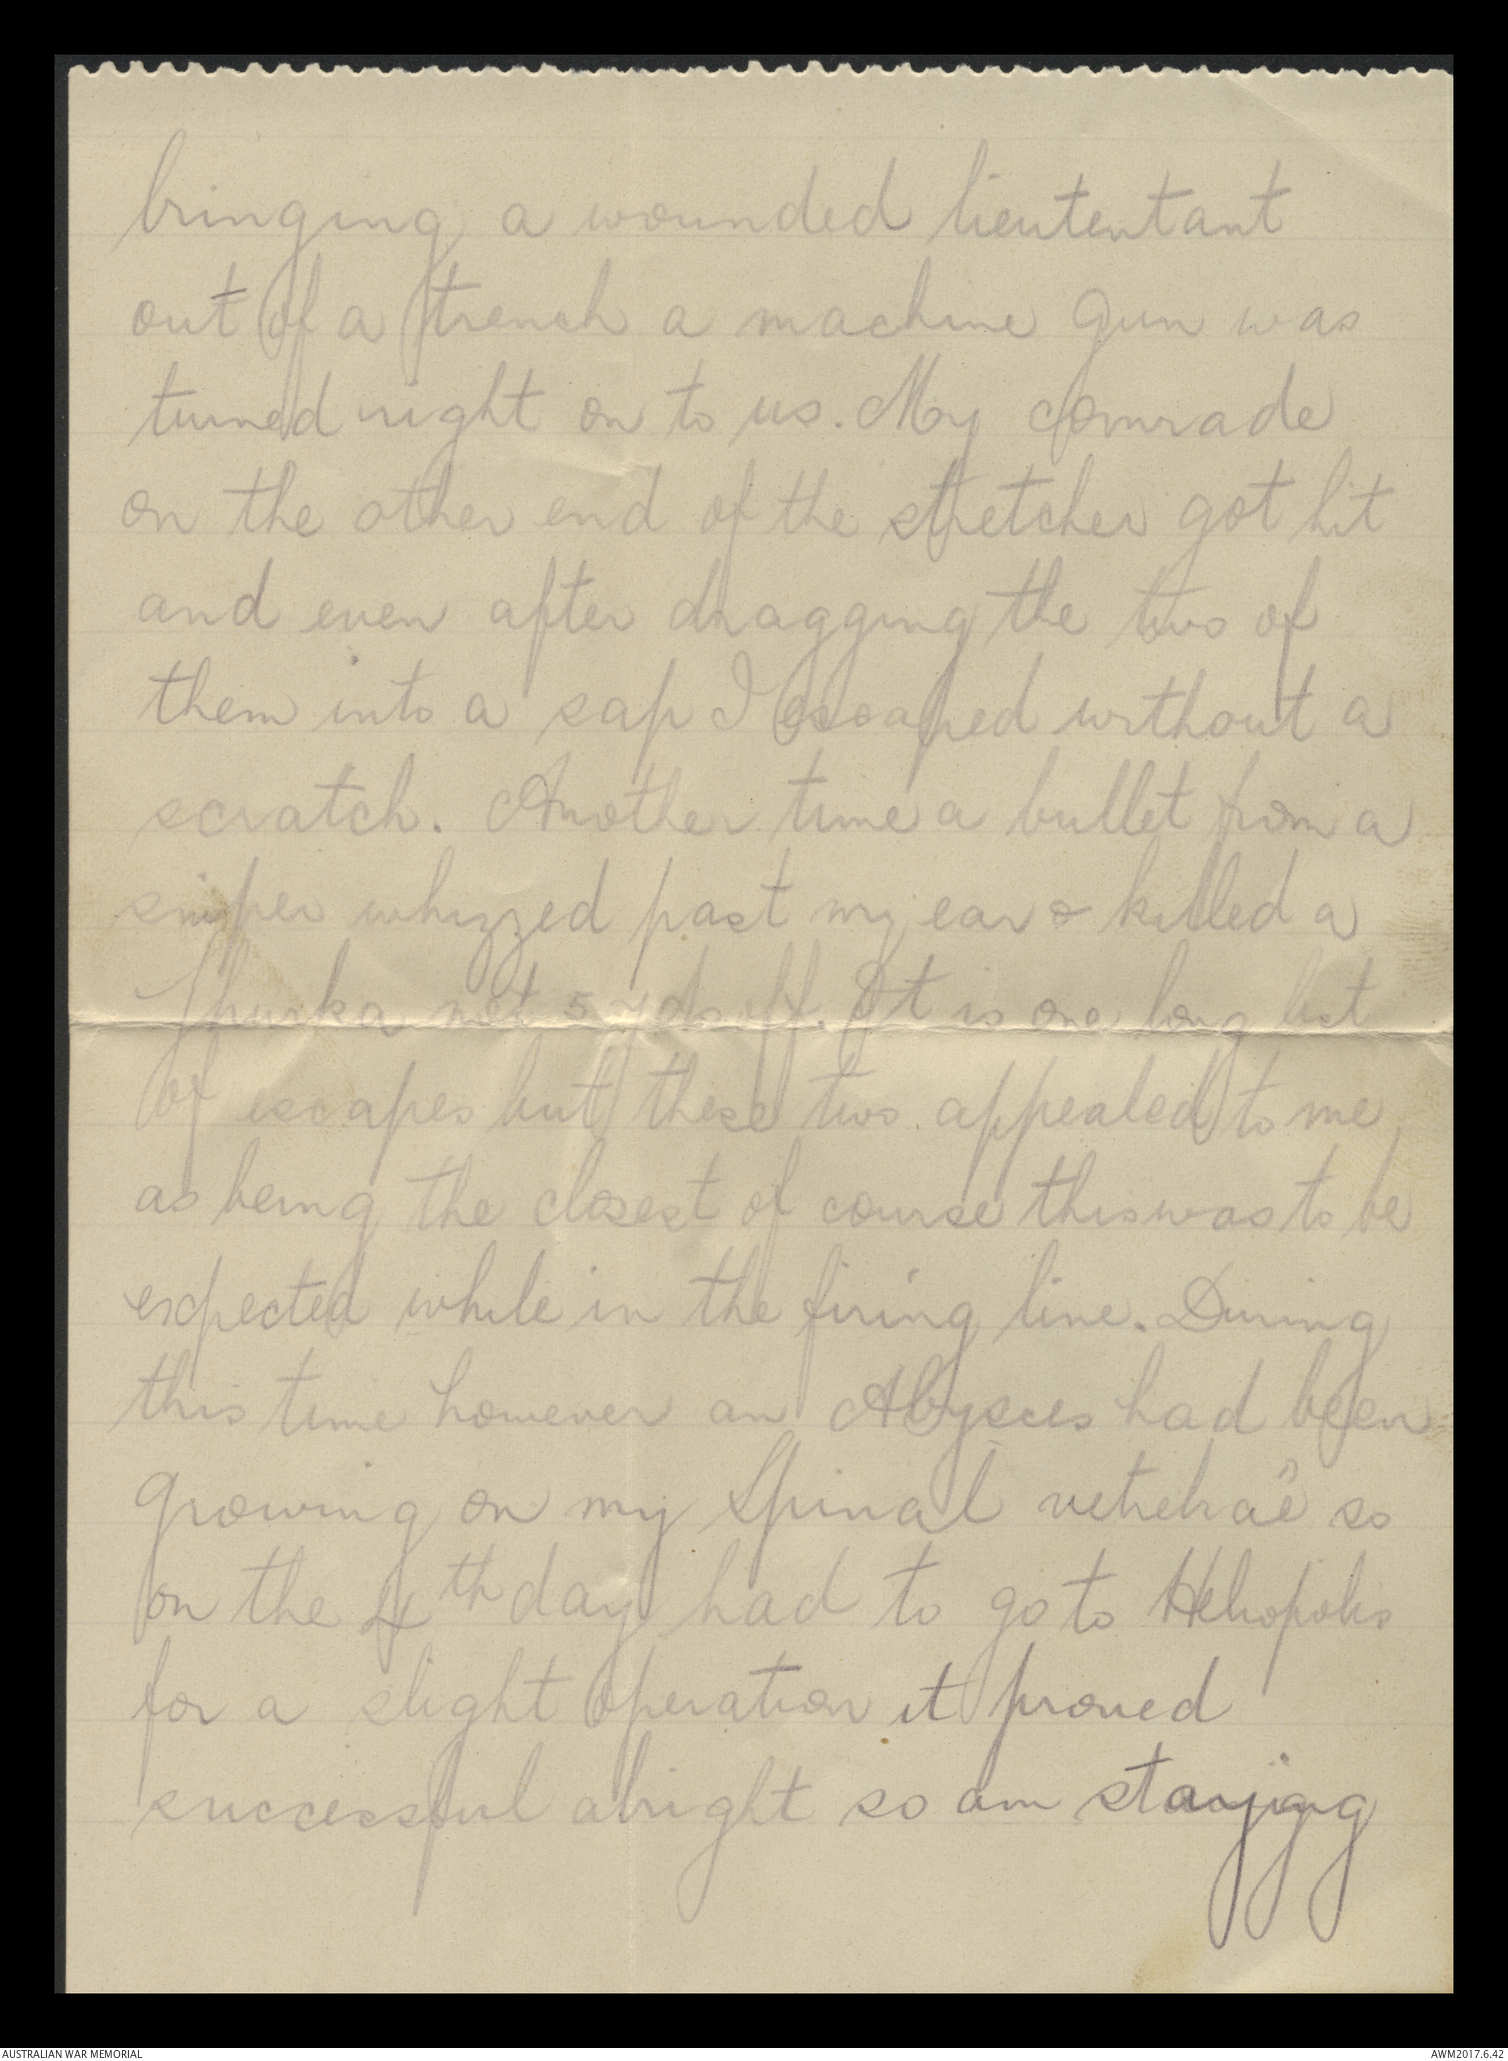 bringing a wounded lieutentant
out of a trench a machine gun was
turned right on to us. My comrade
on the other end of the stretcher got hit
and even after dragging the two of
them into a sap I escaped without a
scratch. Another time a bullet from a
sniper whizzed past my ear & killed a
Ghurka not 5 yds off. It is one long list
of escapes but these two appealed to me
as being the closest of course this was to be
expected while in the firing line. During
this time however an Abysces had been
growing on my Spinal vetrebraê so
on the 4th day had to go to Heliopolis
for a slight operation it proved
successful alright so am stayijg
AUSTRALIAN WAR MEMORIAL
AWM2017.6.42